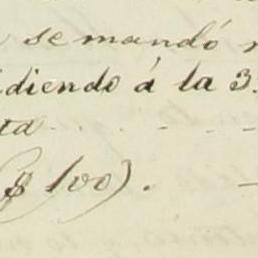 se mandó
idiendo á la 3
ta . . . . - - -
($ 100). -